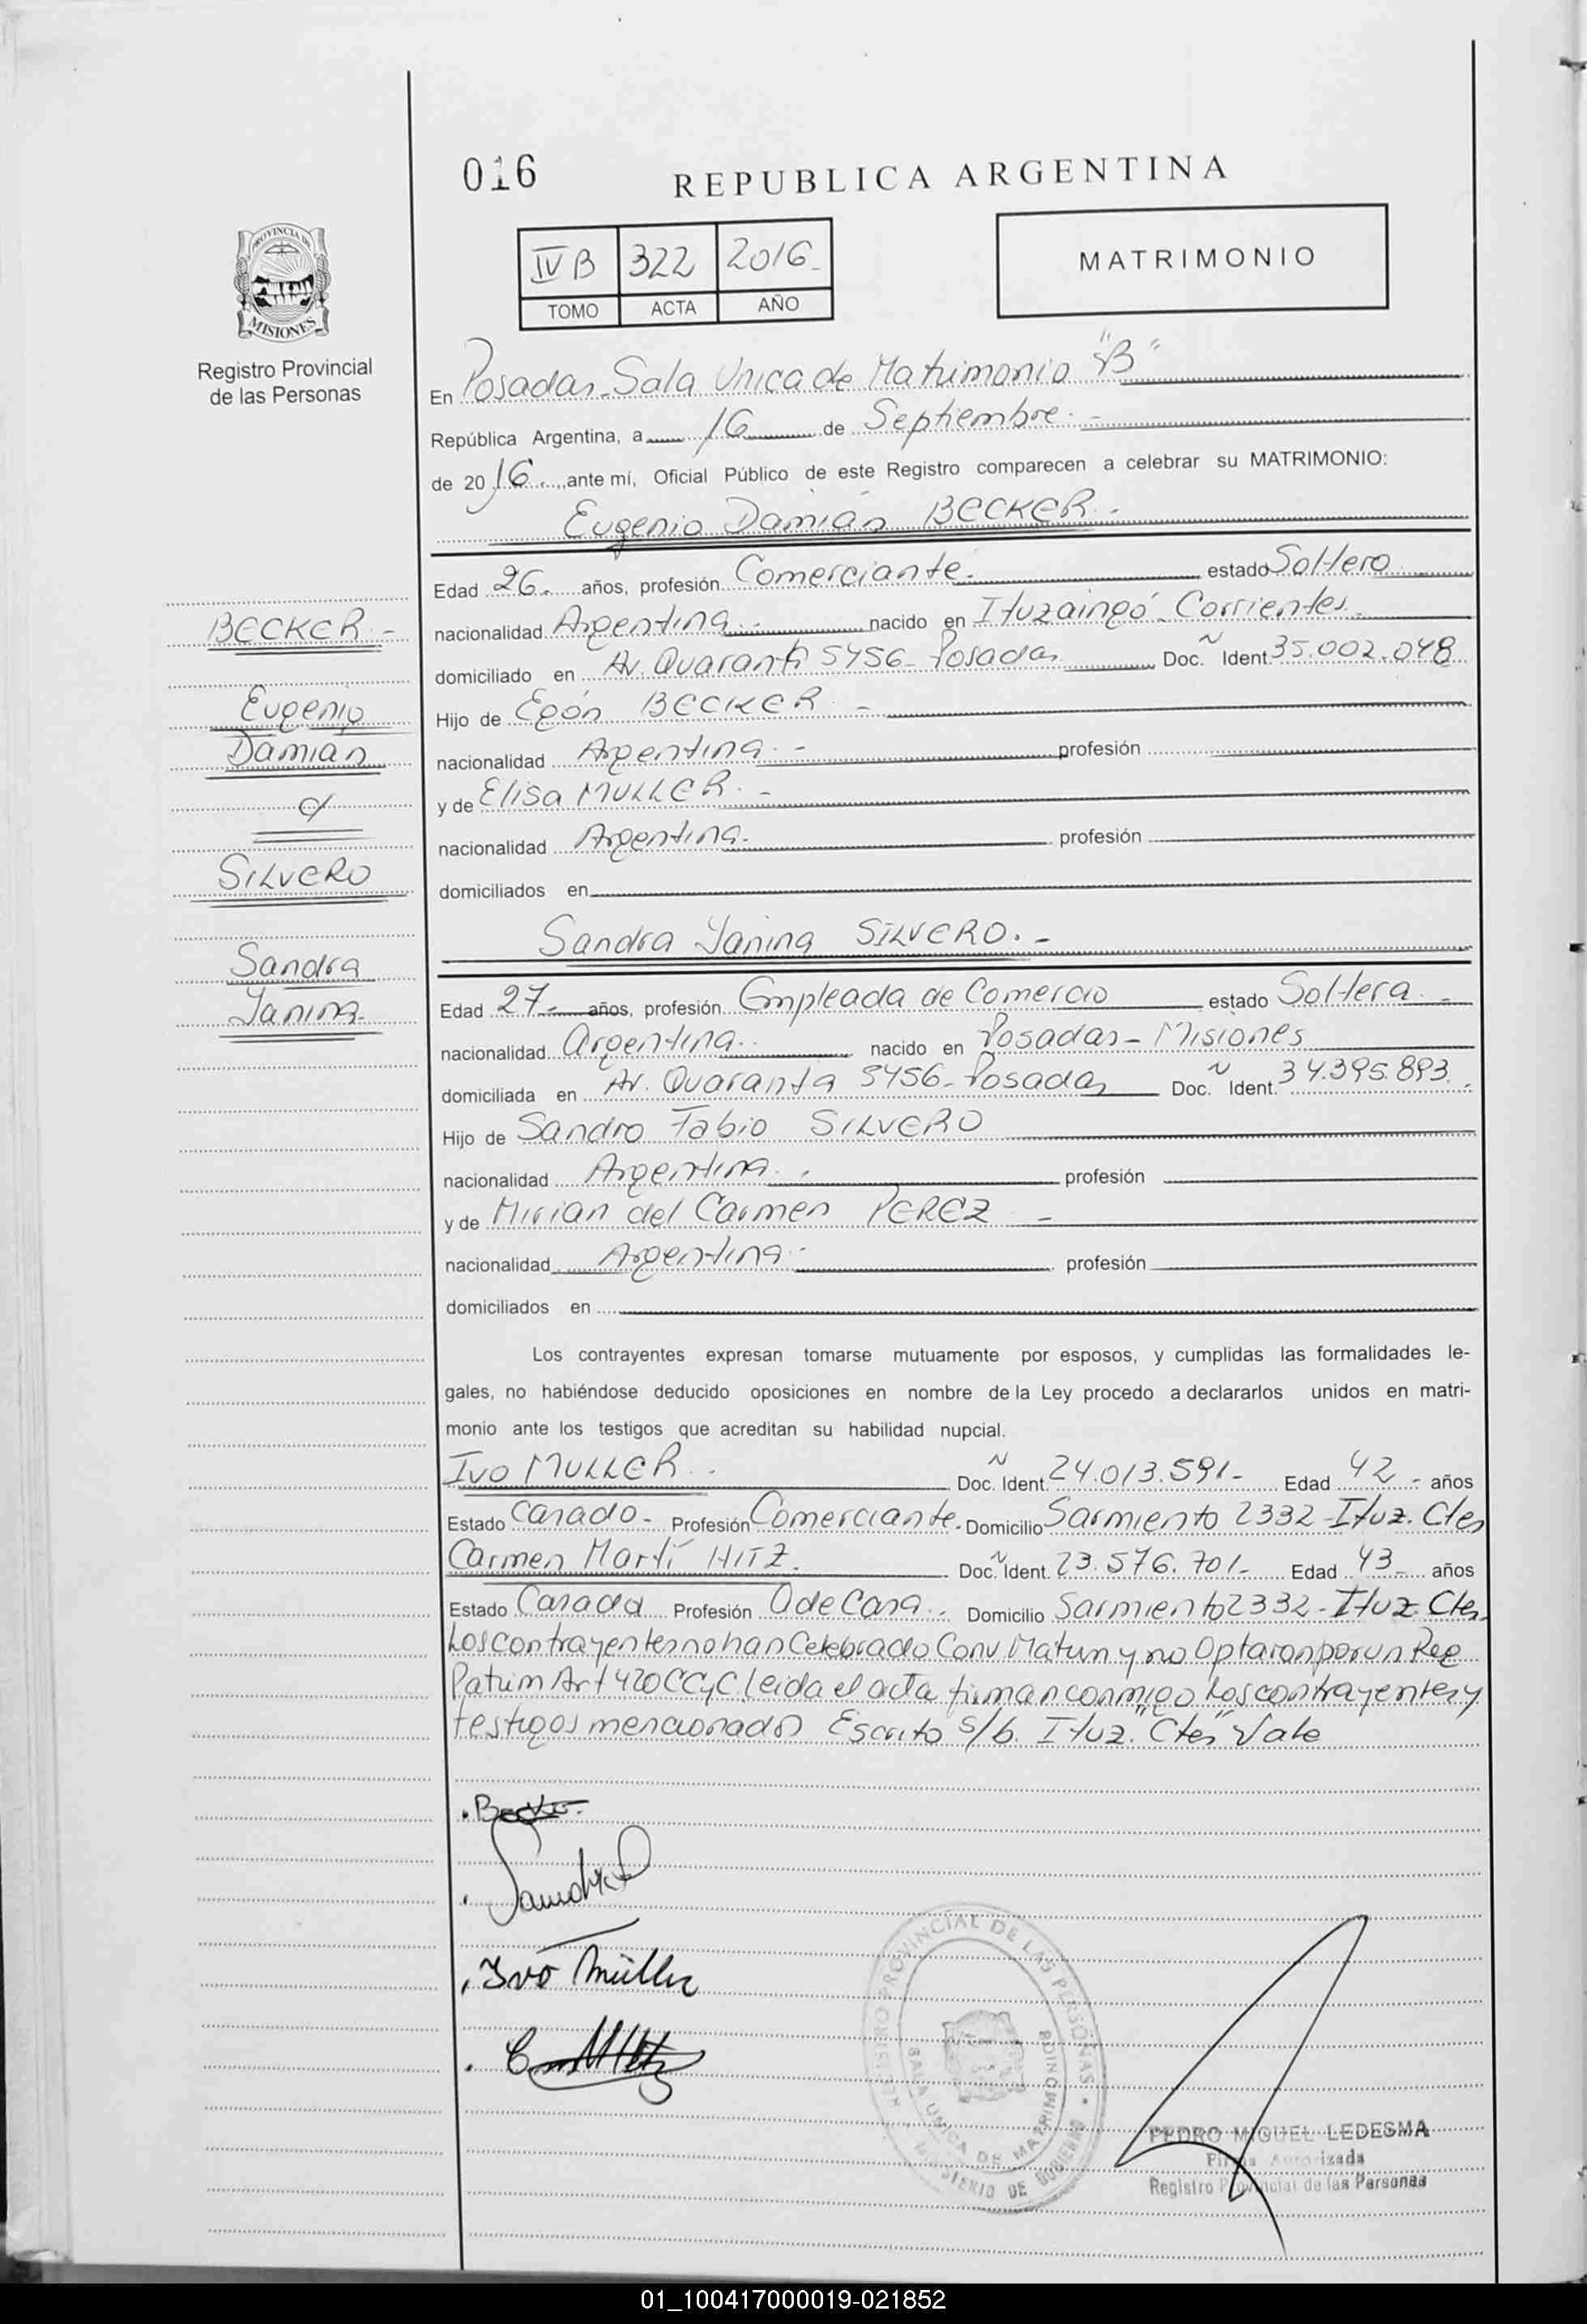 016
REPUBLICA ARGENTINA
PROVINCIA DE
MISIONES
Registro Provincial
de las Personas
IVB 322 2016
TOMO ACTA AÑO
MATRIMONIO
En Posadas - Sala Unica de Matrimonio "B"
República Argentina, a 16 de Septiembre. -
de 2016. ante mí, Oficial Público de este Registro comparecen a celebrar su MATRIMONIO:
Eugenio Damián BECKER. -
Edad 26. años, profesión Comerciante. estado Soltero
nacionalidad Argentina. - nacido en Ituzaingó - Corrientes
domiciliado en Av. Quaranta 5456 - Posadas Doc. Ident. 35.002.048
Hijo de Egón BECKER -
nacionalidad Argentina. - profesión
y de Elisa MULLER. -
nacionalidad Argentina. profesión
domiciliados en
Sandra Yanina SILVERO. -
Edad 27. años, profesión Empleada de Comercio estado Soltera -
nacionalidad Argentina. nacido en Posadas - Misiones
domiciliada en Av. Quaranta 5456 - Posadas Doc. Ident. 34.395.893.
Hijo de Sandro Fabio SILVERO
nacionalidad Argentina. profesión
y de Mirian del Carmen PEREZ -
nacionalidad Argentina. profesión
domiciliados en
BECKER -
Eugenio
Damián
c/
SILVERO
Sandra
Yanina
Los contrayentes expresan tomarse mutuamente por esposos, y cumplidas las formalidades le-
gales, no habiéndose deducido oposiciones en nombre de la Ley procedo a declararlos unidos en matri-
monio ante los testigos que acreditan su habilidad nupcial.
Ivo MULLER. Doc. Ident. 24.013.591- Edad 42 - años
Estado Casado - Profesión Comerciante. Domicilio Sarmiento 2332 - Ituz. Ctes
Carmen Martí HITZ. Doc. Ident. 23.576.701- Edad 43 - años
Estado Casada Profesión A de Casa. Domicilio Sarmiento 2332 - Ituz. Ctes.
Los contrayentes no han Celebrado Conv. Matrim y no Optaron por un Reg
Patrim Art 420 CCyC leida el acta firman conmigo los contrayentes y
testigos mencionados Escrito s/b. Ituz. "Ctes" Vale
Becker
Sandra
Ivo Müller
REGISTRO PROVINCIAL DE LAS PERSONAS
SALA UNICA DE MATRIMONIOS
MINISTERIO DE GOBIERNO
PEDRO MIGUEL LEDESMA
Firma Autorizada
Registro Provincial de las Personas
01_100417000019-021852